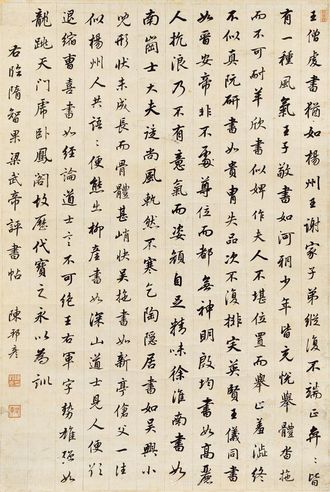 王僧虔書如楊州王謝家子弟縱復不端正奕〻皆
有一種風氣王子敬書如河朔少年皆充悅舉體沓拖
而不可耐羊欣書似婢作夫人不堪位置而舉止羞澁終
不似真阮研書如貴胄失品次不復排突英賢王儀同書
如晉安帝非不處尊位而都無神明殷均書如高麗
人抗浪乃不有意氣而姿顏自足精味徐淮南書如
南崗士大夫徒尚風軌然不寒乞陶隱居書如吳興小
兒形狀未成長而骨體甚峭快吳施書如新亭傖父一往
似楊州人共語〻便態出柳產書如深山道士見人便欲
退縮曹喜書如經論道士言不可絕王右軍字勢雄強如
龍跳天門虎臥鳳閣故歷代寶之永以為訓
右臨隋智果梁武帝評書帖 陳邦彥